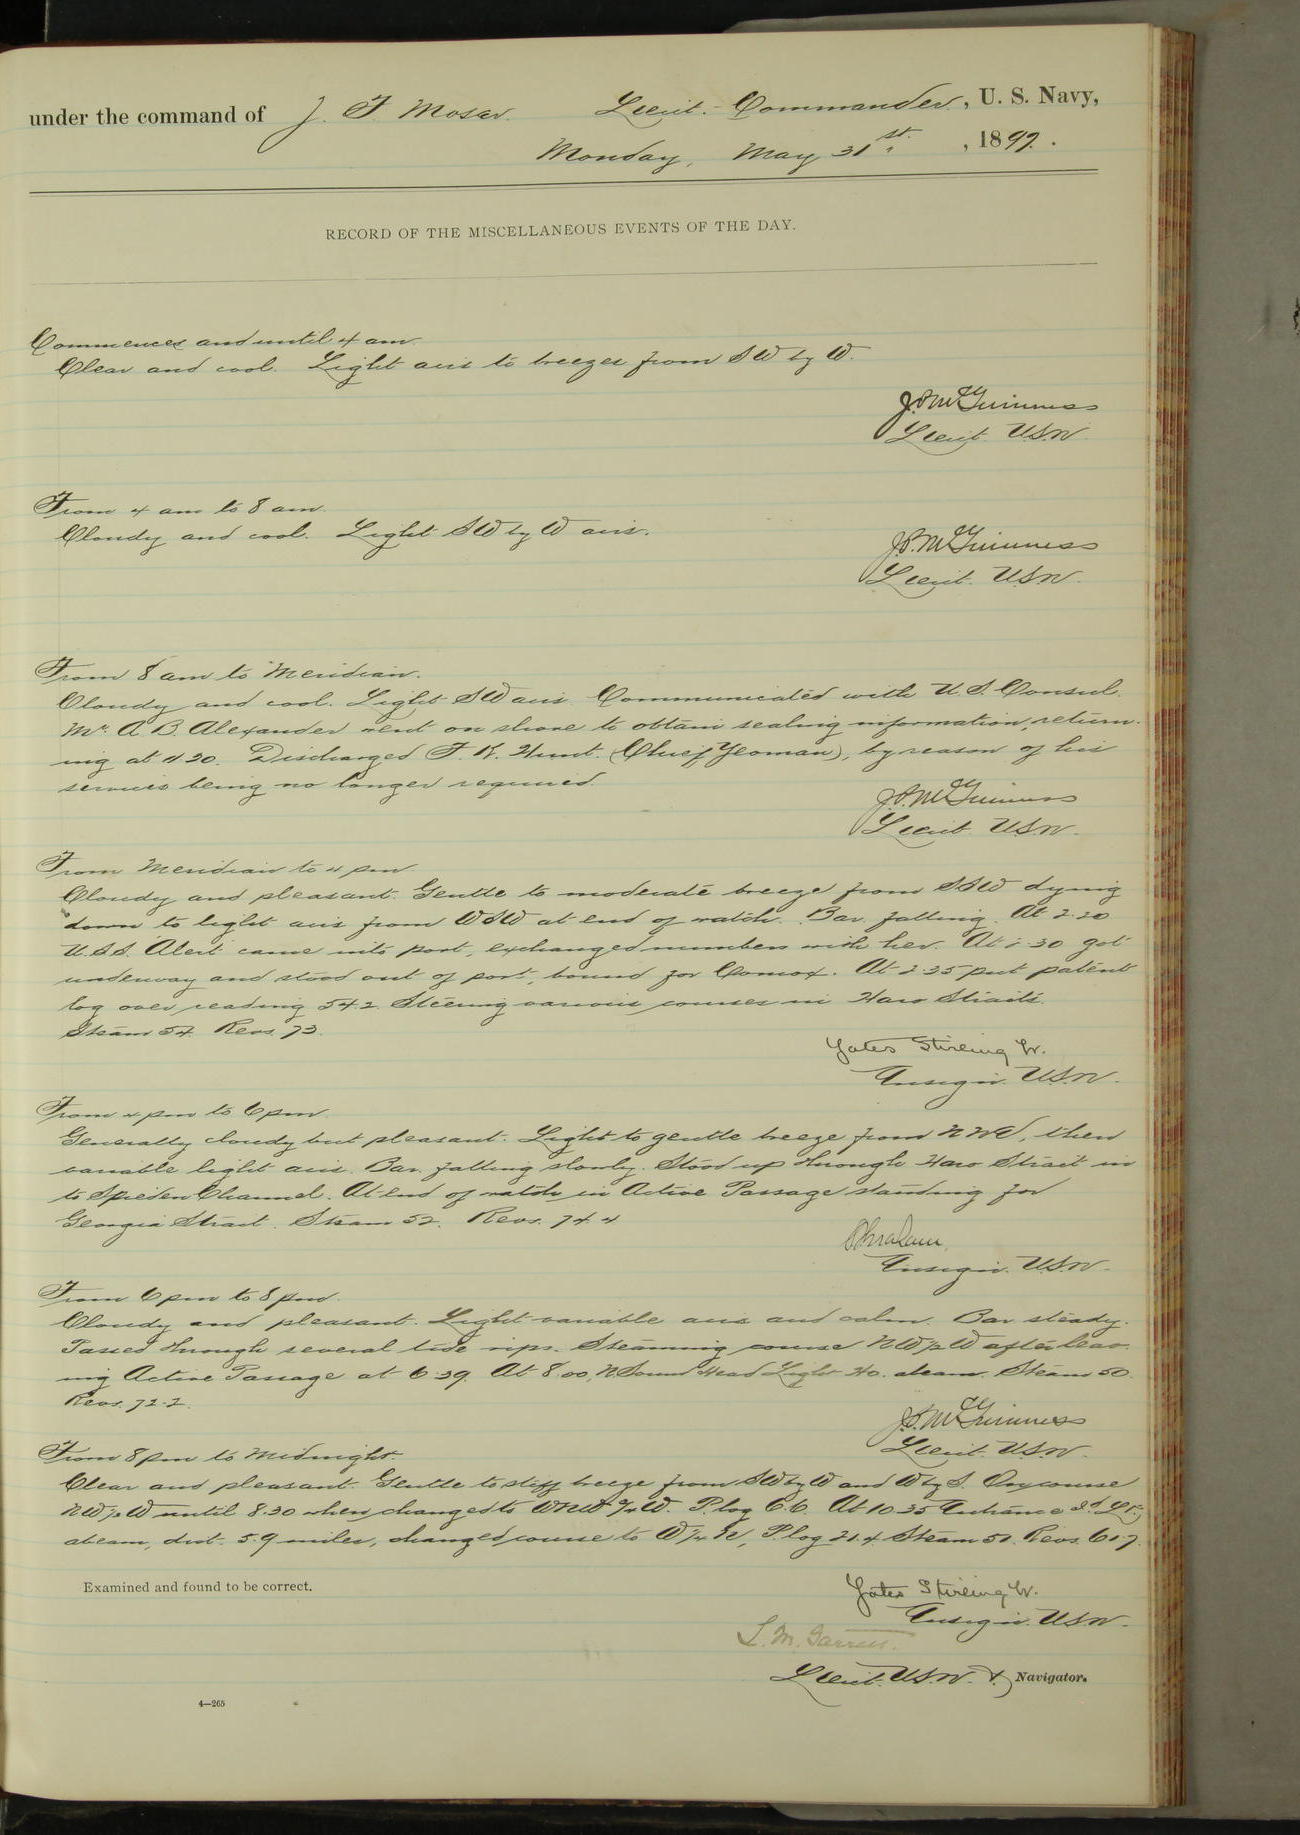 under the command of J. F. Moser Lieut.-Commander, U. S. Navy,
Monday, May 31st, 1897.
RECORD OF THE MISCELLANEOUS EVENTS OF THE DAY.
Commences and until 4 am.
Clear and cool. Light airs to breezes from SW by W.
J.P. McGuinness
Lieut. U.S.N.
From 4 am to 8 am.
Cloudy and cool. Light SW by W airs.
J.P. McGuinness
Lieut. U.S.N.
From 8 am to Meridian.
Cloudy and cool. Light SW airs. Communicated with U.S. Consul.
Mr. A. B. Alexander went on shore to obtain sealing information, return-
ing at 11 20. Discharged F. K. Hunt. (Chief Yeoman), by reason of his
services being no longer required.
J.P. McGuinness
Lieut. U.S.N.
From Meridian to 4 pm
Cloudy and pleasant. Gentle to moderate breeze from SSW dying
down to light airs from WSW at end of watch. Bar. falling. At 2.20
U.S.S. Alert came into port, exchanged numbers with her. At 2.30 got
underway and stood out of port, bound for Comox. At 2.35 put patent
log over reading 54.2. Steering various courses in Haro Straits.
Steam 54. Revs. 73.
Yates Stirling Jr.
Ensign. U.S.N.
From 4 pm to 6 pm.
Generally cloudy but pleasant. Light to gentle breeze from NNW, then
variable light airs. Bar. falling slowly. Stood up through Haro Strait in
to Spieden Channel. At end of watch in Active Passage standing for
Georgia Strait. Steam 52. Revs. 74.4
Graham.
Ensign. U.S.N.
From 6 pm to 8 pm.
Cloudy and pleasant. Light variable airs and calm. Bar steady.
Passed through several tide rips. Steaming course NW½W after leav-
ing Active Passage at 6.39. At 8.00, Light Ho. abeam. Steam 50.
Revs. 72.2.
J.P. McGuinness
Lieut. U.S.N.
From 8 pm to Midnight.
Clear and pleasant. Gentle to stiff breeze from SW by W and W by S. On course
NW½W until 8.30 when changed to WNW ¾ W. P. log 6.6. At 10.35 Entrance Id Lt.
abeam, dist. 5.9 miles, changed course to W¼N, P. log 21.4 Steam 51. Revs. 61.7.
Examined and found to be correct.
Yates Stirling Jr.
Ensign. U.S.N.
L. M. Garrett.
Lieut. U.S.N. & Navigator.
4—265